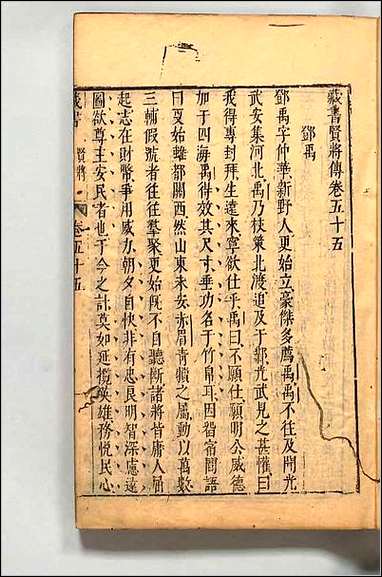 藏書賢將傳卷五十五
鄧禹
鄧禹字仲華新野人更始立豪傑多薦禹禹不往及聞光
武安集河北禹乃杖策北渡追及于鄴光武見之甚懽曰
我得專封拜生遠來寧欲仕乎禹曰不願仕願明公威德
加于四海禹得效其尺寸垂功名于竹帛耳因留宿間語
曰更始雖都關西然山東未安赤眉青犢之屬動以萬數
三輔假號者往往羣聚更始既不自聽斷諸將皆庸人屈
起志在財幣爭用威力朝夕自快非有忠良明智深慮遠
圖欲尊主安民者也于今之計莫如延攬英雄務悅民心
藏書 賢將 卷五十五